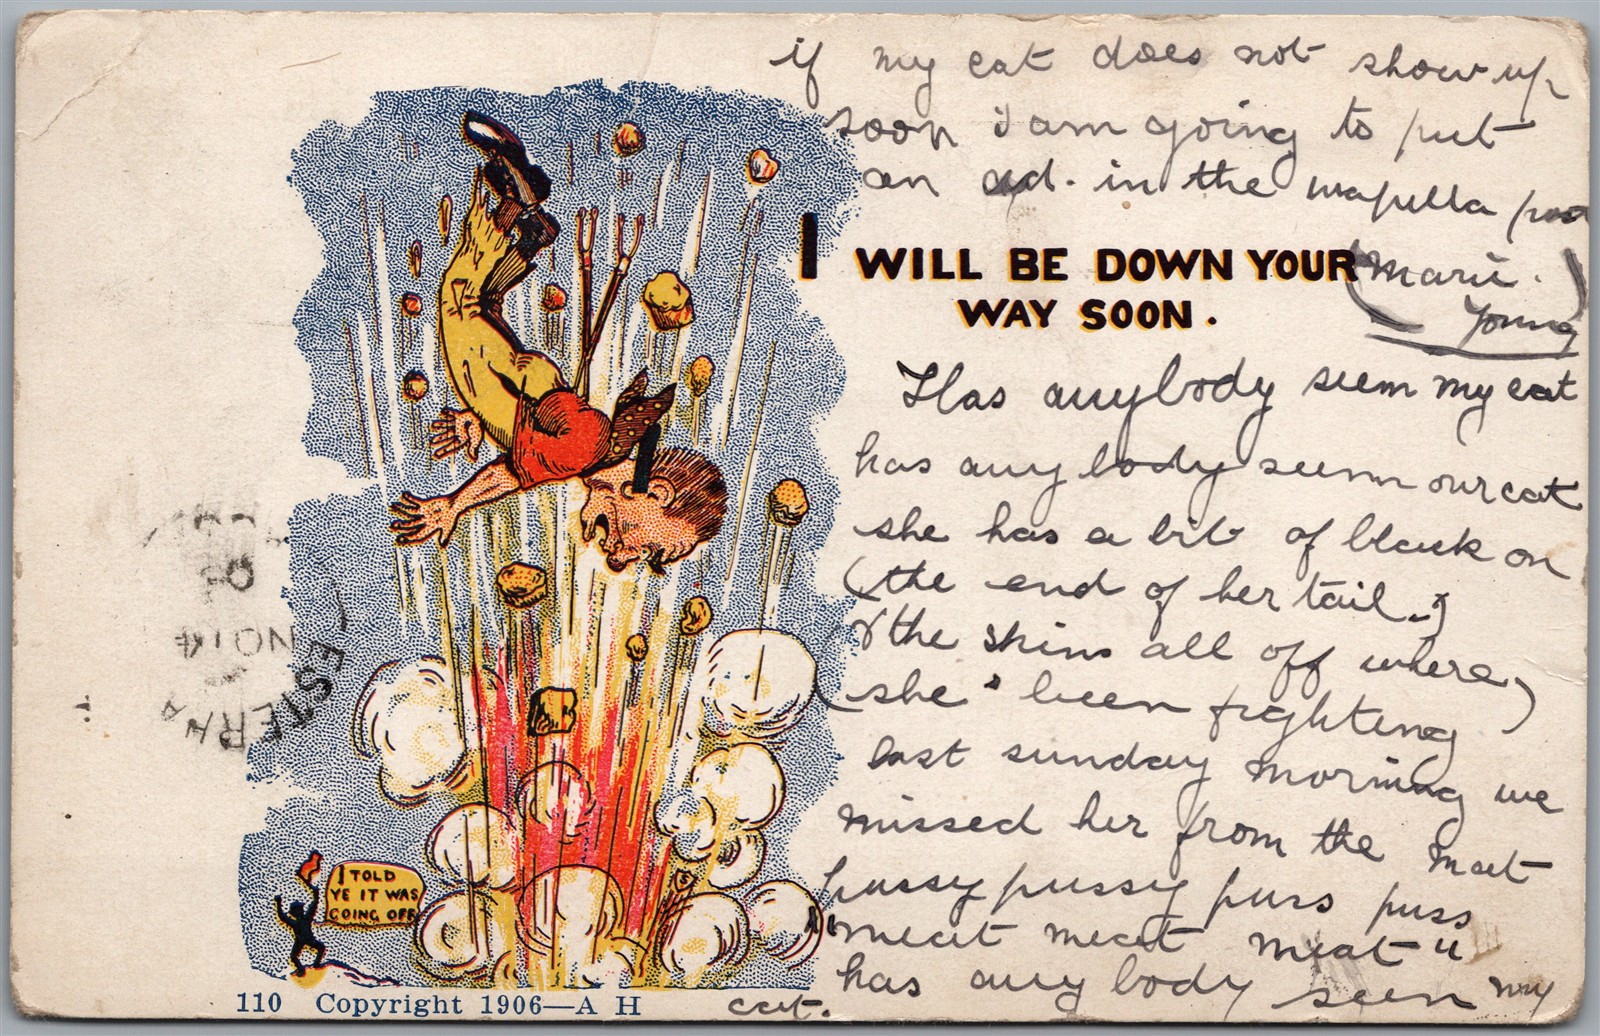 if my cat does not show up
soon i am going to put
an ad. in the wapella post
I WILL BE DOWN YOUR
WAY SOON.
(Marie.)
Young
Has anybody seem my cat
has any body seem our cat
she has a bit of black on
(the end of her tail.)
(& the skins all off where)
(she's been fighting
last sunday morning we
missed her from the mat
pussy pussy puss puss
"meat meat meat"
has any body seen my
cat.
I TOLD
YE IT WAS
GOING OFF
110 Copyright 1906—A H